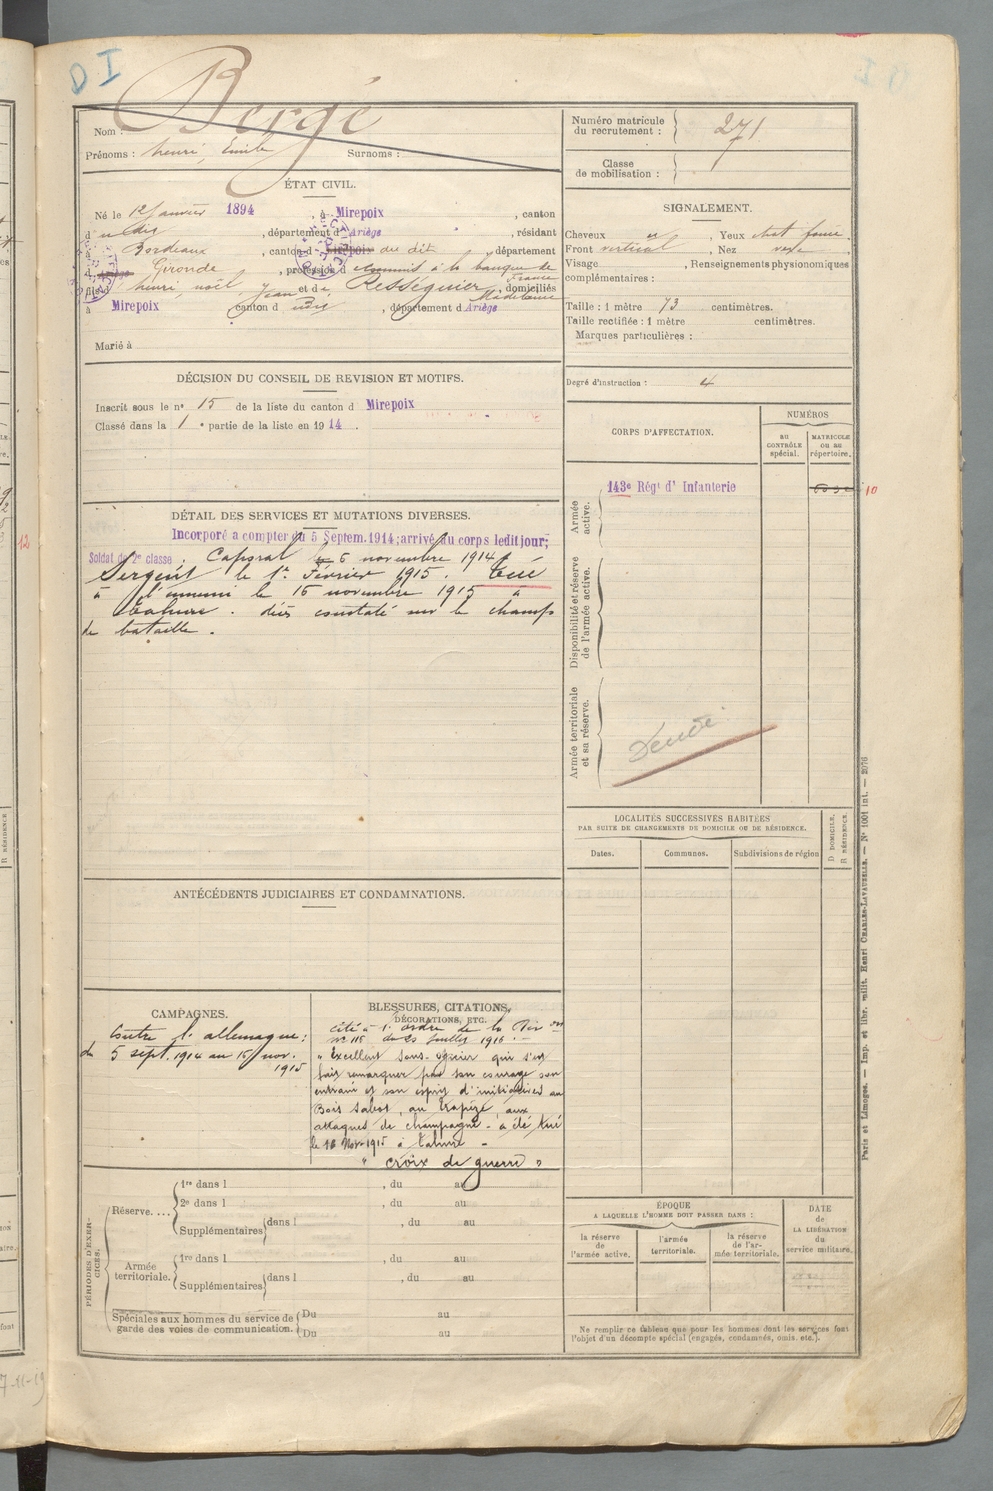 D I
Bergé
Nom :
Prénoms : henri, Emile Surnoms :
Numéro matricule
du recrutement : 271
Classe
de mobilisation :
ÉTAT CIVIL.
Né le 12 Janvier 1894, à Mirepoix, canton
d u dis, département d Ariège, résidant
à Bordeaux, canton d Mirepoix du dit, département
d Ariège Gironde, profession d Commis à la banque de France
fils d henri, noël Jean et de Rességuier Madeleine, domiciliés
à Mirepoix canton d udis, département d Ariège
Marié à
SIGNALEMENT.
Cheveux, Yeux chat foncé.
Front vertical, Nez vexe
Visage, Renseignements physionomiques
complémentaires :
Taille : 1 mètre 73 centimètres.
Taille rectifiée : 1 mètre centimètres.
Marques particulières :
Degré d'instruction : 4
DÉCISION DU CONSEIL DE REVISION ET MOTIFS.
Inscrit sous le nº 15 de la liste du canton d Mirepoix
Classé dans la 1 e partie de la liste en 1914.
CORPS D'AFFECTATION.
NUMÉROS
au
CONTRÔLE
spécial.
MATRICULE
ou au
répertoire.
Armée
active.
143e Régt d'Infanterie
10
Disponibilité et réserve
de l'armée active.
Armée territoriale
et sa réserve.
DÉTAIL DES SERVICES ET MUTATIONS DIVERSES.
12
Incorporé a compter du 5 Septem. 1914; arrivé au corps ledit jour;
Soldat de 2e classe. Caporal le 6 novembre 1914
Sergent le 1er Février 1915. Tué
à l'ennemi le 16 novembre 1915 à
Tahure. décès constaté sur le champ
de bataille.
LOCALITÉS SUCCESSIVES HABITÉES
PAR SUITE DE CHANGEMENTS DE DOMICILE OU DE RÉSIDENCE.
Dates.
Communes.
Subdivisions de région
D DOMICILE.
R RÉSIDENCE.
ANTÉCÉDENTS JUDICIAIRES ET CONDAMNATIONS.
CAMPAGNES.
Contre l'allemagne :
du 5 sept. 1914 au 15 nov.
1915
BLESSURES, CITATIONS,
DÉCORATIONS, ETC.
Cité à l'ordre de la Division
nº 115 du 23 Juillet 1916.-
"Excellent sous-officier qui s'est
fait remarquer par son courage son
entrain et son esprit d'initiative au
Bois Sabot, au Trapèze, aux
attaques de champagne - a été tué
le 16 Nov. 1915 à Tahure -
" croix de guerre "
PÉRIODES D'EXERCICES.
Réserve....
1re dans l, du au
2e dans l, du au
Supplémentaires dans l, du au
Armée
territoriale.
1re dans l, du au
Supplémentaires dans l, du au
Spéciales aux hommes du service de
garde des voies de communication.
Du au
Du au
ÉPOQUE
A LAQUELLE L'HOMME DOIT PASSER DANS :
la réserve
de
l'armée active.
l'armée
territoriale.
la réserve
de l'armée territoriale.
DATE
de
LA LIBÉRATION
du
service militaire.
Ne remplir ce tableau que pour les hommes dont les services font
l'objet d'un décompte spécial (engagés, condamnés, omis, etc.).
Paris et Limoges. — Imp. et libr. milit. Henri CHARLES-LAVAUZELLE. — Nº 1001 int. — 2076